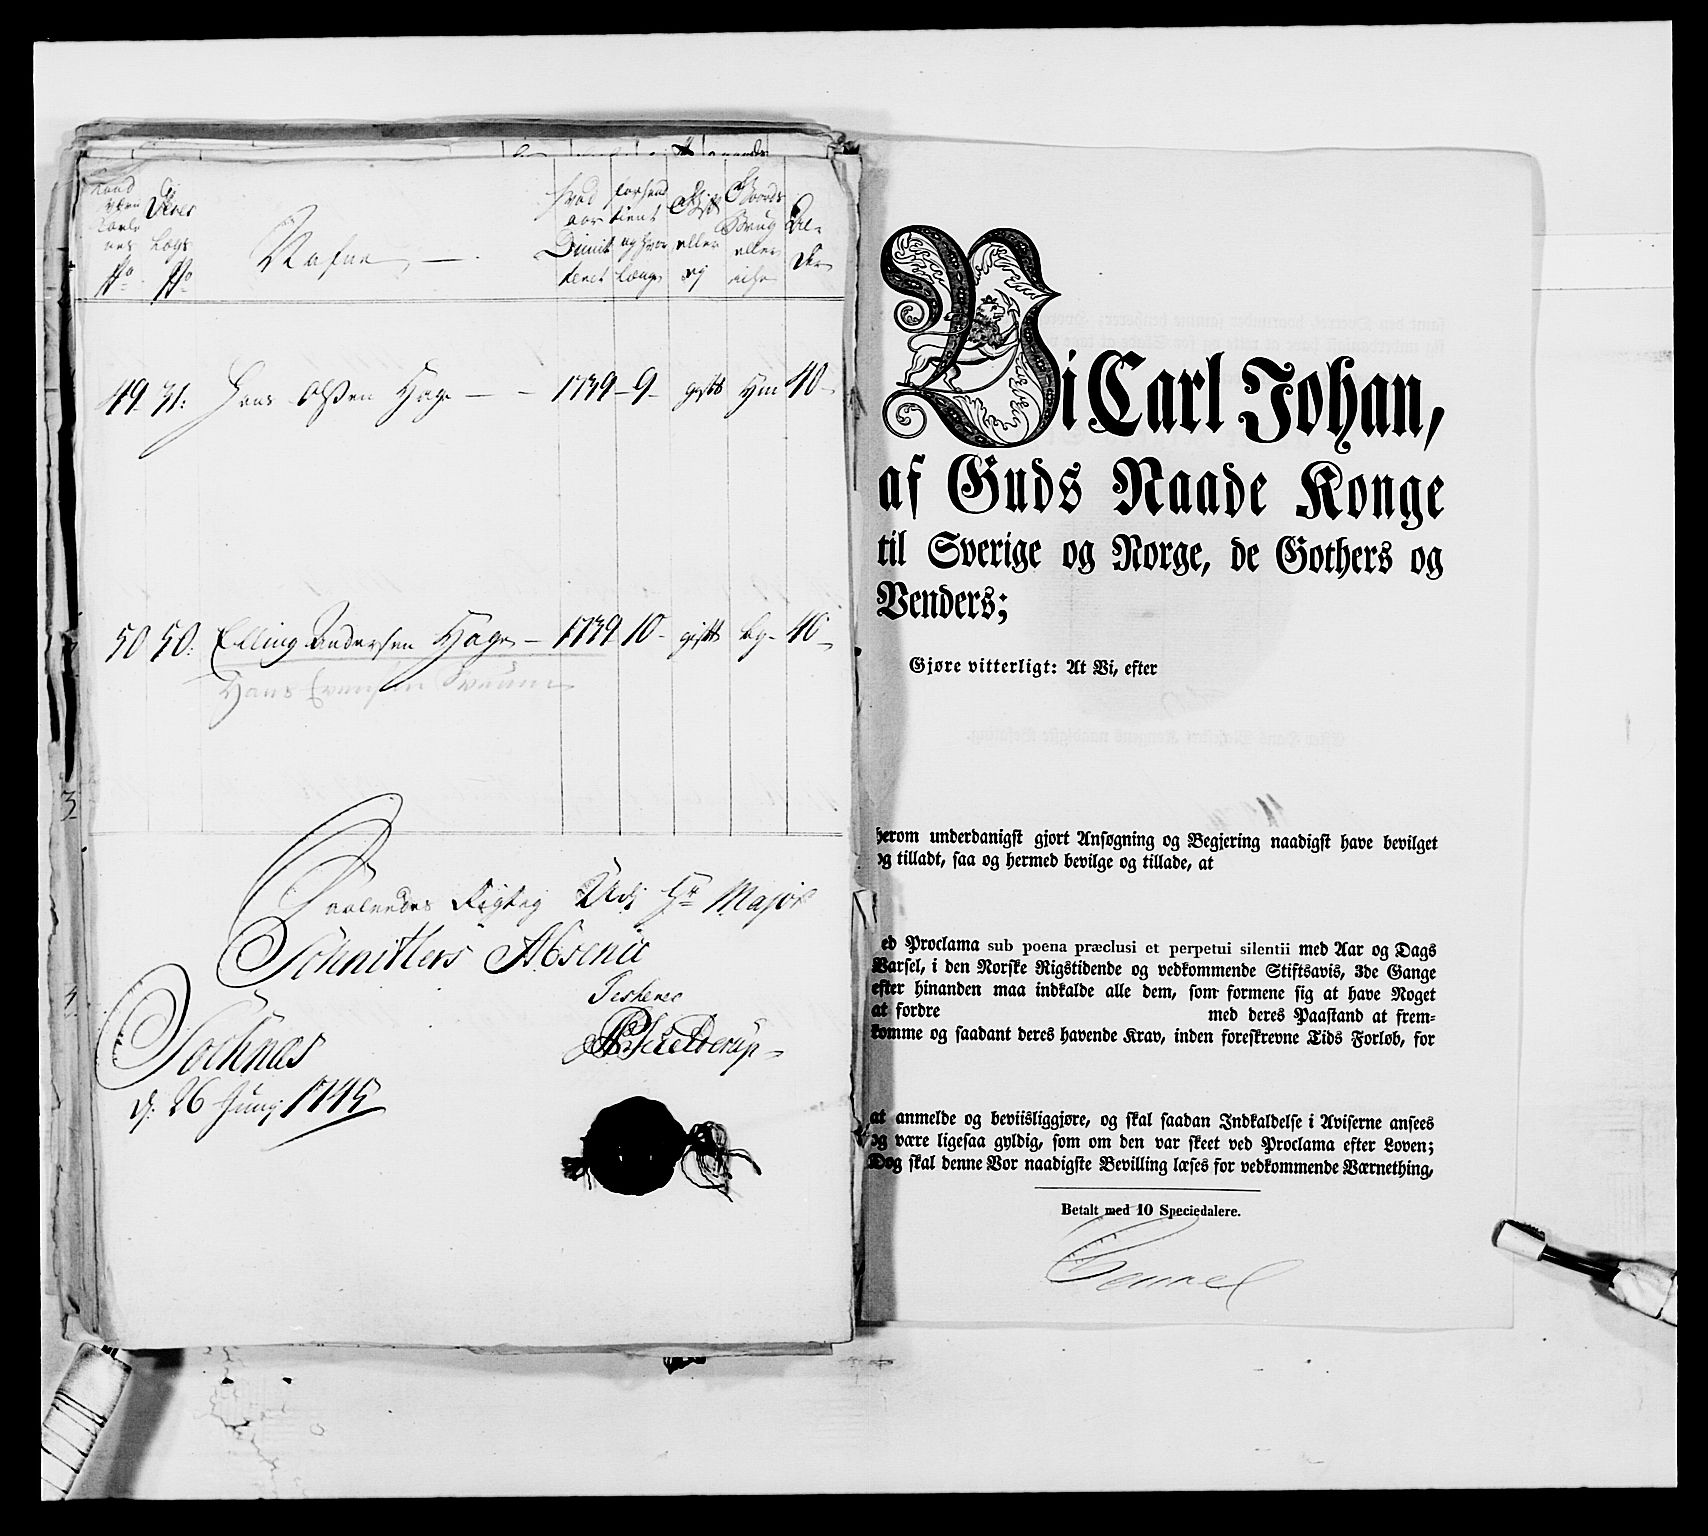 Deres
Laugs
No
No
Nafne
Hvad
aar
Dimit
teret
forhen
tient
og hvor
længe
Gift
eller
ej
Gaards
Brug
eller
icke
Al-
der
49 31: Hans Olsen Hage — 1739 - 9 - gift Hm 40 -
50 50: Elling Andersen Hage — 1739 10 - gift bg - 40 -
Hans Evensen
Saaledes Rigtig Udi Hr Major
Schnitlers Absence
Testerer
Sochnæs
d: 26 Junij 1745
Vi Carl Johan,
af Guds Naade Konge
til Sverige og Norge, de Gothers og
Venders;
Gjøre vitterligt: At Vi, efter
herom underdanigst gjort Ansøgning og Begjering naadigst have bevilget
og tilladt, saa og hermed bevilge og tillade, at
ed Proclama sub poena præclusi et perpetui silentii med Aar og Dags
Varsel, i den Norske Rigstidende og vedkommende Stiftsavis, 3de Gange
efter hinanden maa indkalde alle dem, som formene sig at have Noget
at fordre med deres Paastand at frem-
komme og saadant deres havende Krav, inden foreskrevne Tids Forløb, for
at anmelde og beviisliggjøre, og skal saadan Indkaldelse i Aviserne ansees
og være ligesaa gyldig, som om den var skeet ved Proclama efter Loven;
Dog skal denne Vor naadigste Bevilling læses for vedkommende Værnething,
Betalt med 10 Speciedalere.